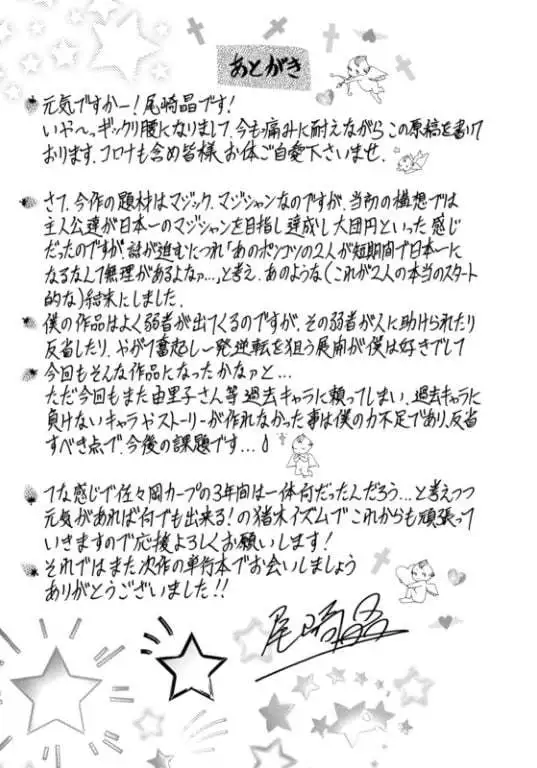 あとがき
元気ですかー!尾崎晶です!
いや〜っギックリ腰になりまして、今も痛みに耐えながらこの原稿を書いて
おります。コロナも含め皆様、お体ご自愛下さいませ。
さて、今作の題材はマジック、マジシャンなのですが、当初の構想では
主人公達が日本一のマジシャンを目指し達成し大団円といった感じ
だったのですが、話が進むにつれ「あのポンコツの2人が短期間で日本一に
なるなんて無理があるよなァ…」と考え、あのような(これが2人の本当のスタート
的な)結末にしました。
僕の作品はよく弱者が出てくるのですが、その弱者が人に助けられたり
反省したり、やがて奮起し一発逆転を狙う展開が僕は好きでして
今回もそんな作品になったかなァと…
ただ今回もまた由里子さん等過去キャラに頼ってしまい、過去キャラに
負けないキャラやストーリーが作れなかった事は僕の力不足であり、反省
すべき点で、今後の課題です…
てな感じで佐々岡カープの3年間は一体何だったんだろう…と考えつつ
元気があれば何でも出来る!の猪木イズムでこれからも頑張って
いきますので応援よろしくお願いします!
それではまた次作の単行本でお会いしましょう
ありがとうございました!!
尾崎晶